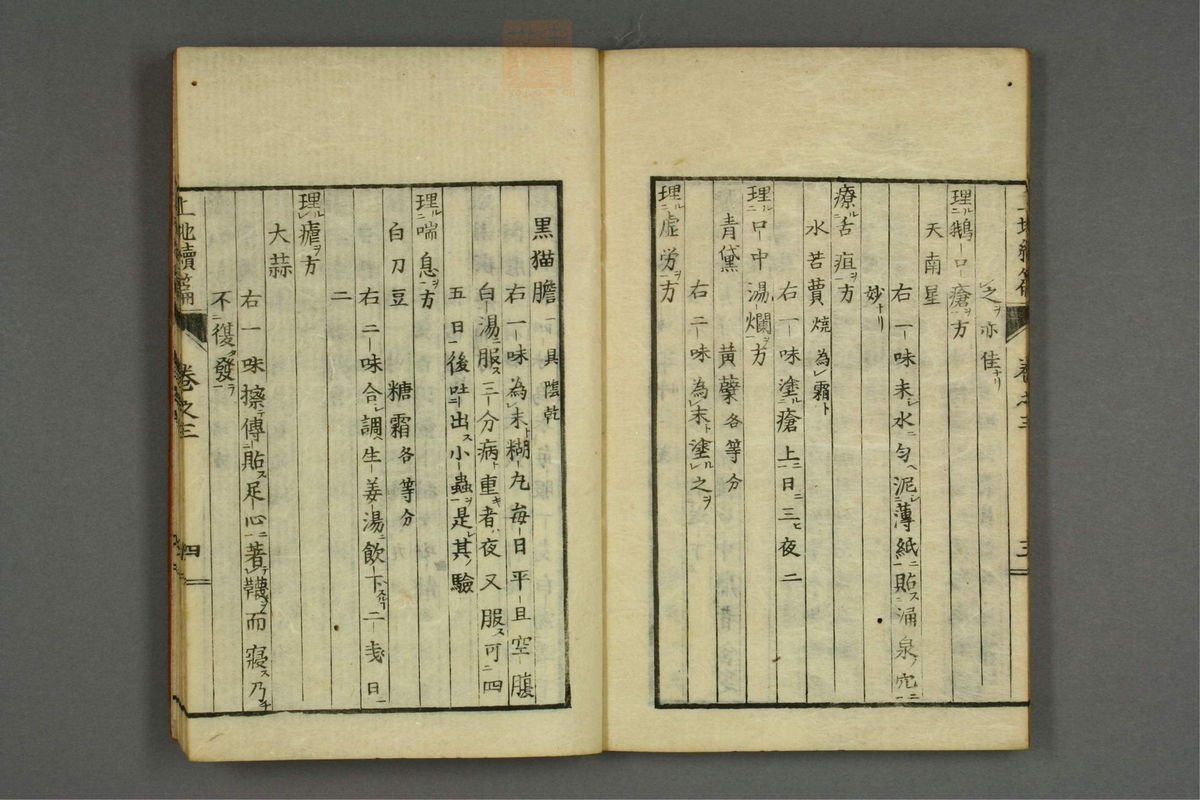 之ヲ亦佳ナリ
理ニル鵝-口-瘡ヲ一方
天南星
右一-味末レ水ニ匀ヘ泥レ薄紙ニ一貼ス涌泉ノ穴ニ一
妙ナリ
療ニル舌疽ヲ一方
水苦蕒燒為レ霜ト
右一-味塗ニル瘡上ニ一日ニ三ヒ夜二
理ニル口-中湯-爛ヲ一方
青黛 黄蘗各等分
右二-味為レ末ト塗ルレ之ヲ
理ニル虚労ヲ一方
三
黒猫膽一具陰乾
右一-味為レ末ト糊-丸毎-日平-旦空-腹
白-湯ニ服ス三-分病ト重キ者ハ夜又服ス可ニ四
五日一後吐ニ出ス小-蟲ヲ一是レ其ノ驗
理ニル喘息ヲ一方
白刀豆 糖霜各等分
右二-味合レ調ス生-姜湯ニ飲-下二-戔日ニ一
二
理ルレ瘧ヲ方
大蒜
右一味擦テ傅ニ貼ス足-心ニ一著テレ韈ヲ而寢ス乃チ
不ニ復タ發一ラ
上地續篇 卷之三 四